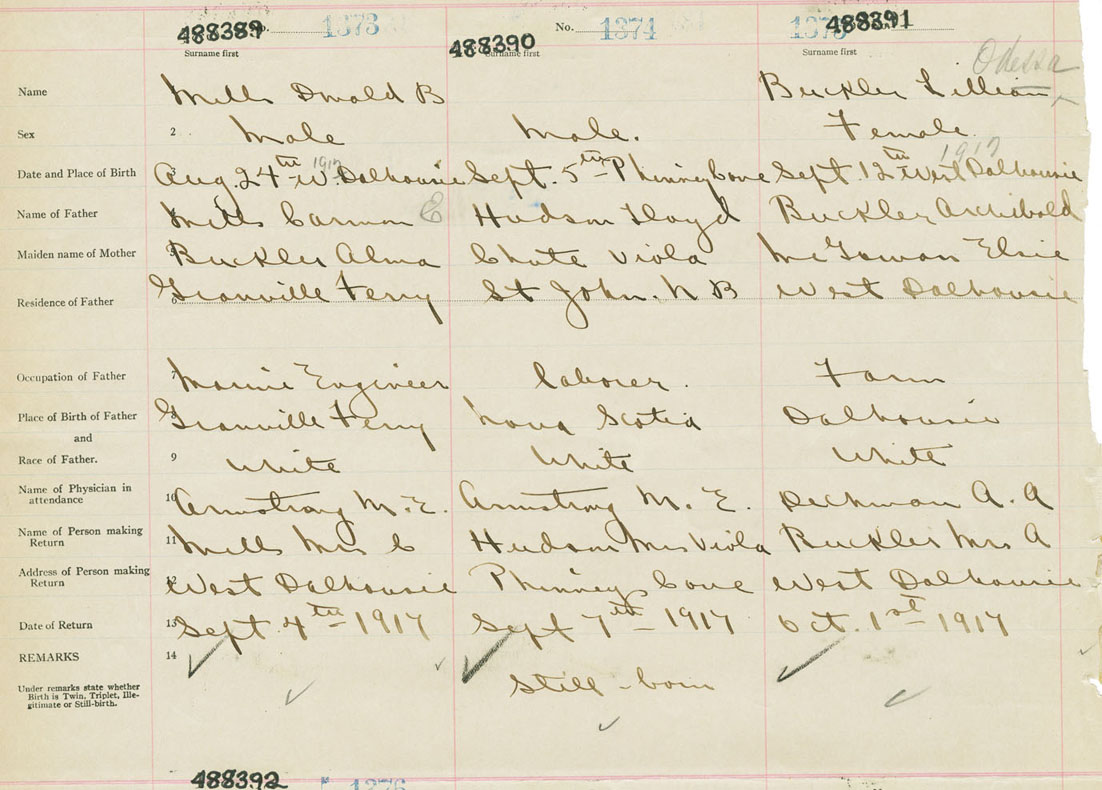 488389 No. 1373 No. 1374 1375 488391
488390
Surname first Surname first Surname first
Odessa
Name Mills Donald B Buckler Lillian
Sex 2 Male Male. Female
1917 1917
Date and Place of Birth Aug. 24th W. Dalhousie Sept. 5th Phinney Cove Sept. 12th West Dalhousie
Name of Father Mills Carmon E Hudson Lloyd Buckler Archibald
Maiden name of Mother Buckler Alma Chute Viola McGowan Elsie
Residence of Father 6 Granville Ferry St John. N B West Dalhousie
Occupation of Father 7 Marine Engineer laborer. Farm
Place of Birth of Father 8 Granville Ferry Nova Scotia Dalhousie
and
Race of Father. 9 White White White
Name of Physician in attendance 10 Armstrong M. E. Armstrong M. E. Deckman A. A
Name of Person making Return 11 Mills Mrs C Hudson Mrs Viola Buckler Mrs A
Address of Person making Return 12 West Dalhousie Phinney Cove West Dalhousie
Date of Return 13 Sept. 4th 1917 Sept 7th 1917 Oct. 1st 1917
REMARKS 14
Under remarks state whether Birth is Twin, Triplet, Ille-
gitimate or Still-birth.
Still-born
488392 1376